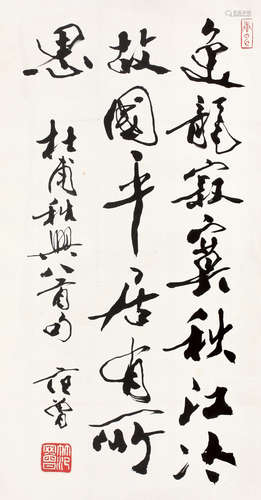 魚龍寂寞秋江冷
故國平居有所
思
杜甫秋興八首句
范曾